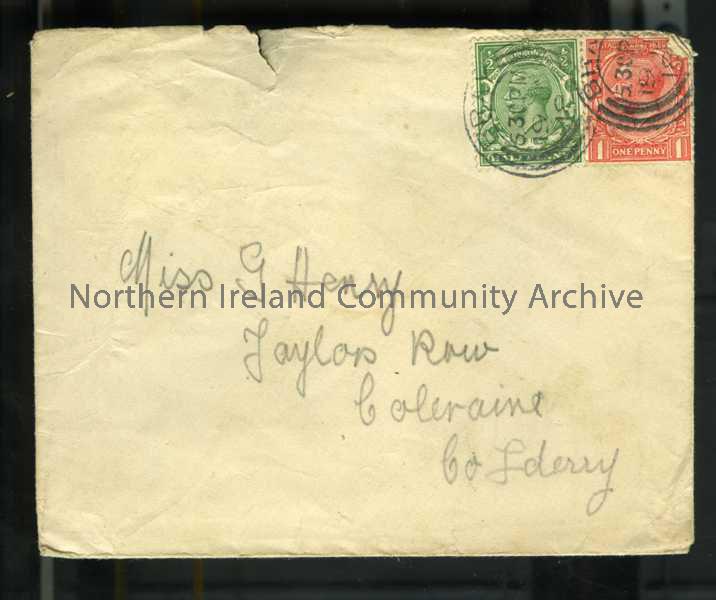 5 30 PM
5 30 P
19
18
HALFPENNY
1 ONE PENNY 1
Miss G Henry
Northern Ireland Community Archive
Taylors Row
Coleraine
Co Lderry